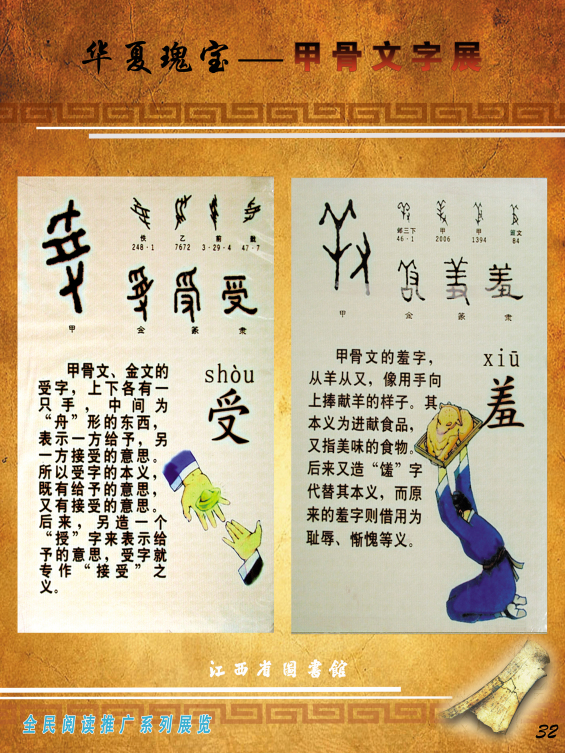 华夏瑰宝——甲骨文字展
佚 乙 前 戬
248·1 7672 3-29-4 47·7
甲 金 篆 隶
甲骨文、金文的
受字，上下各有一
只手，中间为
“舟”形的东西，
表示一方给予，另
一方接受的意思。
所以受字的本义，
既有给予的意思，
又有接受的意思。
后来，另造一个
“授”字来表示给
予的意思，受字就
专作“接受”之
义。
shòu
受
邺三下 甲 甲 掇文
46·1 2006 1394 84
甲 金 篆 隶
甲骨文的羞字，
从羊从又，像用手向
上捧献羊的样子。其
本义为进献食品，
又指美味的食物。
后来又造“馐”字
代替其本义，而原
来的羞字则借用为
耻辱、惭愧等义。
xiū
羞
江西省图书馆
全民阅读推广系列展览
32